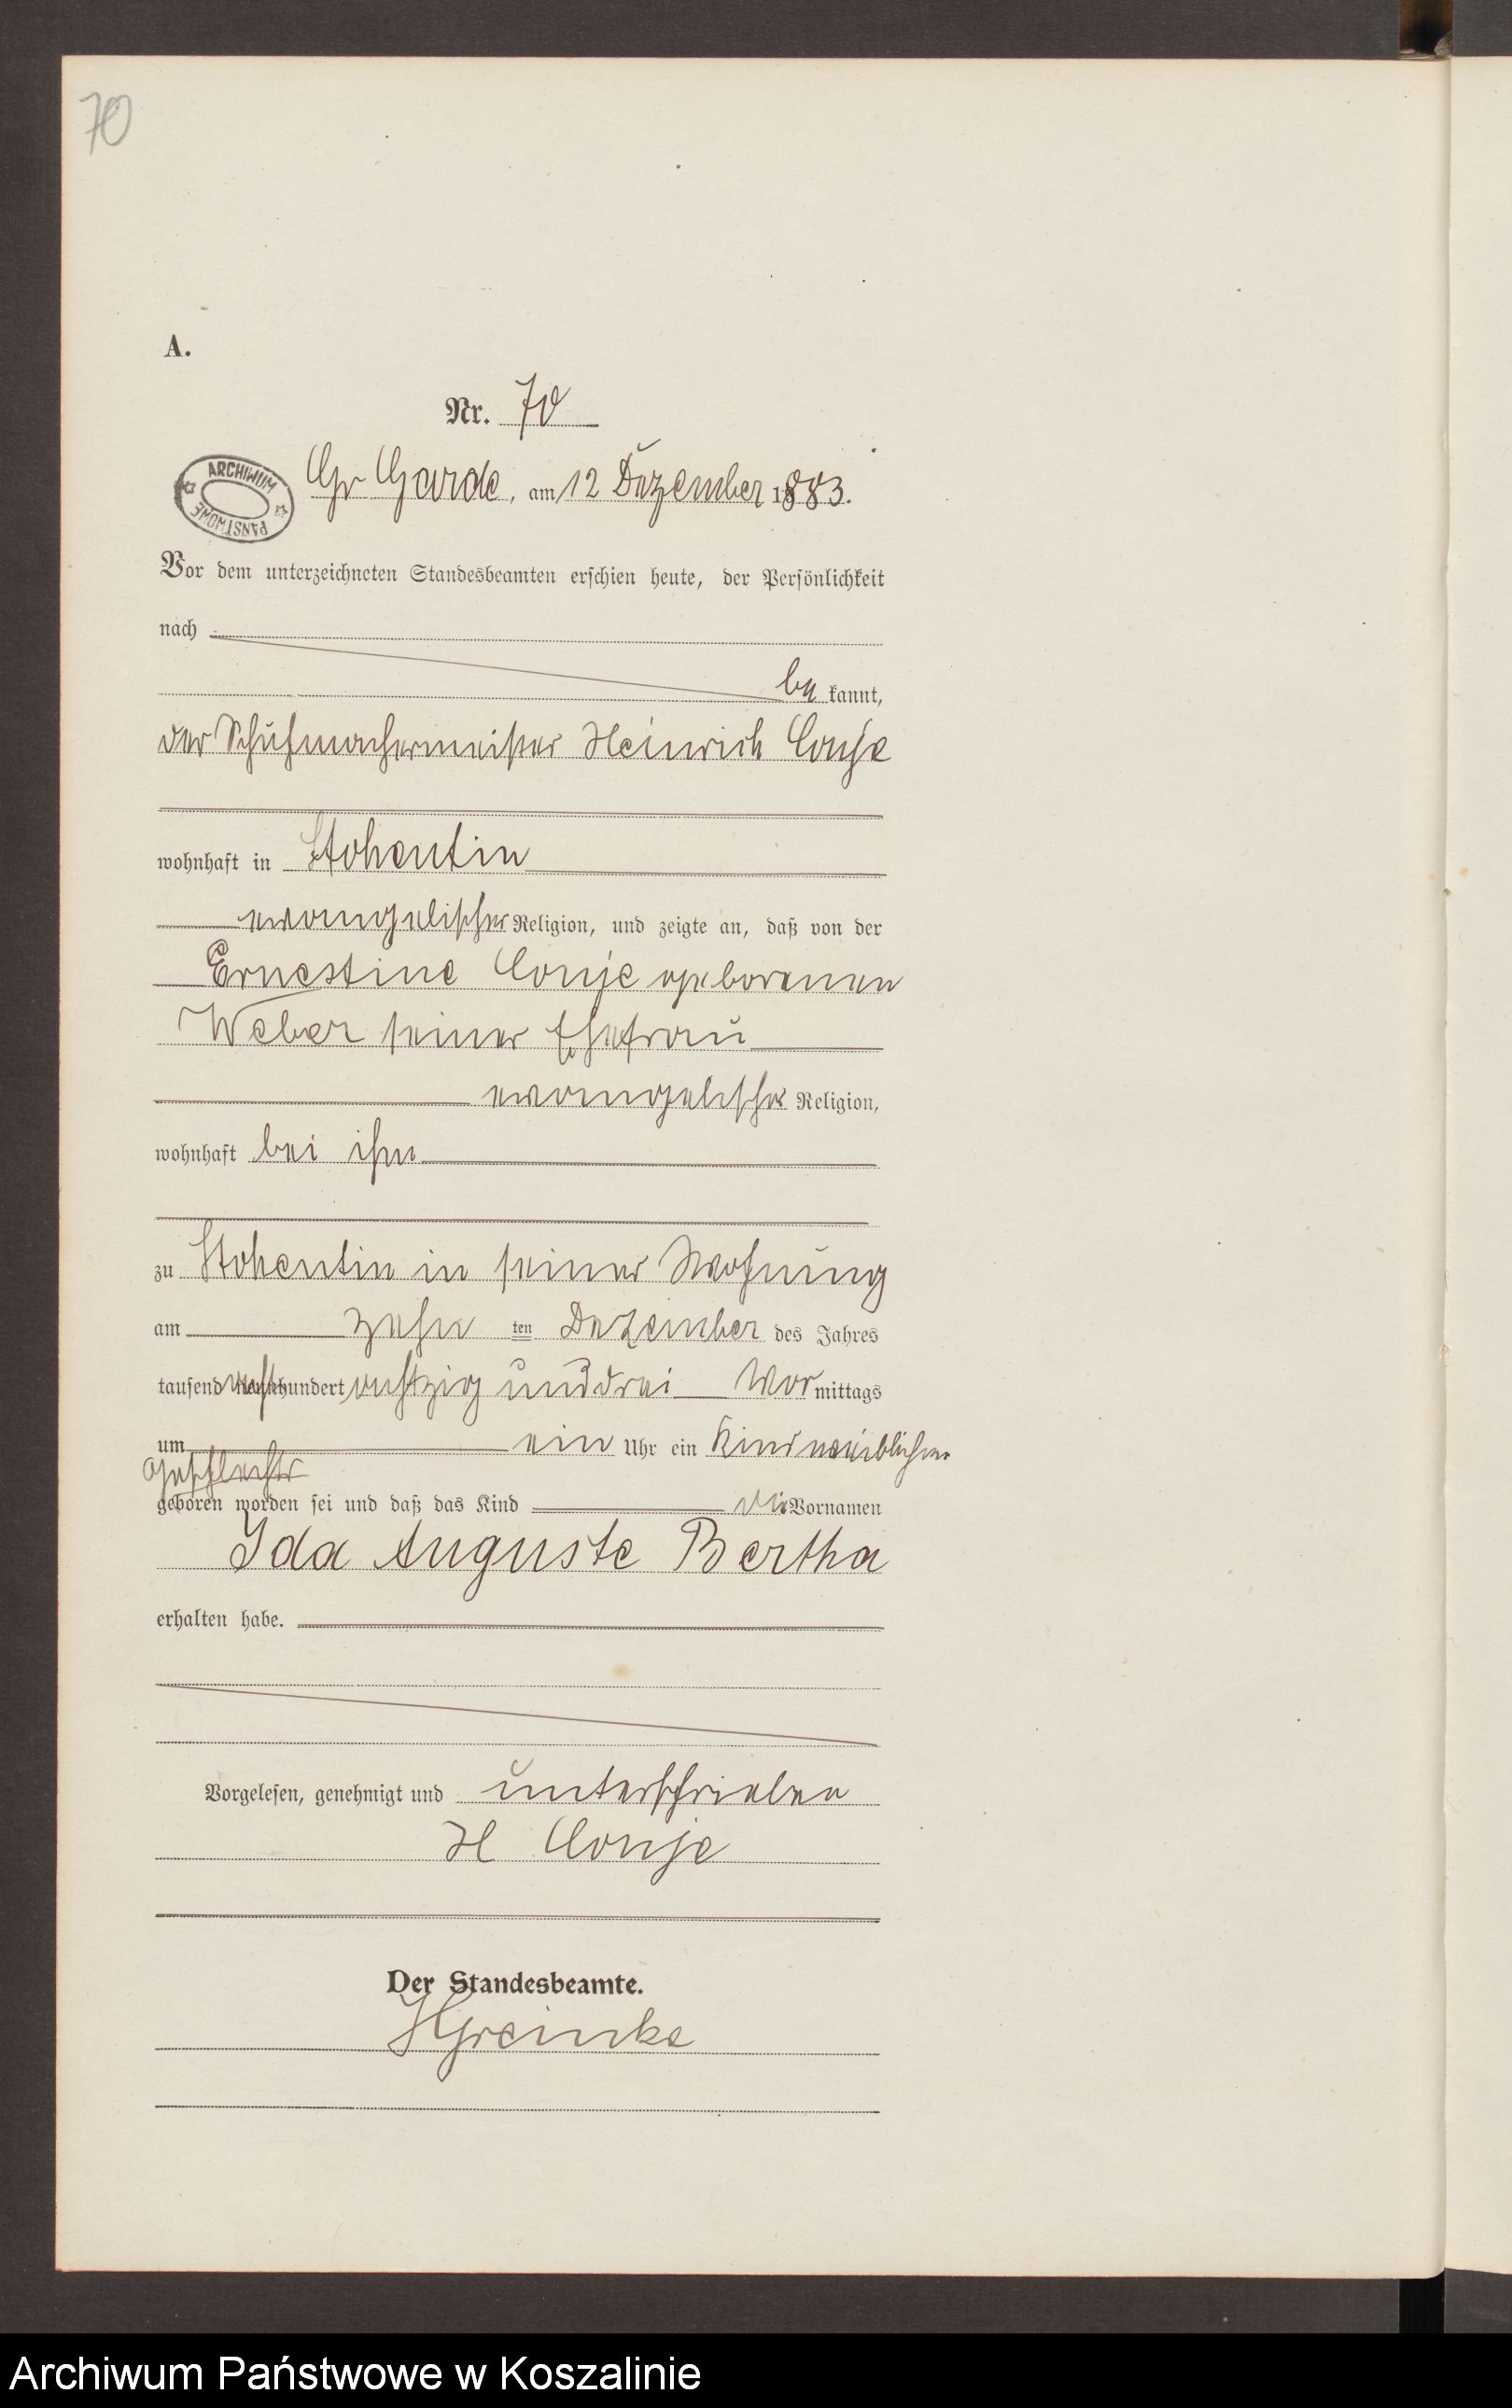 70
A.
Nr. 70
ARCHIWUM PAŃSTWOWE
Gr Garde, am 12 Dezember 1883.
Vor dem unterzeichneten Standesbeamten erschien heute, der Persönlichkeit
nach
be kannt,
der Schuhmachermeister Heinrich Conje
wohnhaft in Stohentin
evangelischer Religion, und zeigte an, daß von der
Ernestine Conje geborenen
Weber seiner Ehefrau
evangelischer Religion,
wohnhaft bei ihm
zu Stohentin in seiner Wohnung
am zehn ten Dezember des Jahres
tausend acht hundert achtzig und drei Vor mittags
um ein Uhr ein Kind weiblichen
Geschlechts
geboren worden sei und daß das Kind die Vornamen
Ida Auguste Bertha
erhalten habe.
Vorgelesen, genehmigt und unterschrieben
H Conje
Der Standesbeamte.
Archiwum Państwowe w Koszalinie